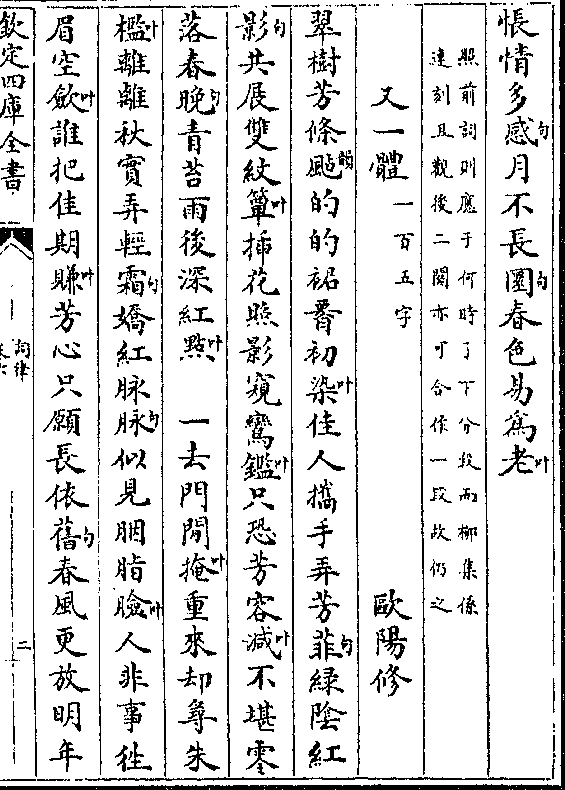 悵情多感句月不長圓句春色易爲老叶
照前詞則應于何時了下分段而柳集係
連刻且觀後二闋亦可合作一段故仍之
又一體一百五字　歐陽修
翠樹芳條颭韻的的裙腰初染叶佳人攜手弄芳菲句綠陰紅
影句共展雙紋簟叶插花照影窺鸞鑑叶只恐芳容減叶不堪零
落春晚句青苔雨後深紅點叶　一去門閒掩叶重來却尋朱
檻叶離離秋實弄輕霜句嬌紅脉脉句似見胭脂臉叶人非事徃
眉空斂叶誰把佳期賺叶芳心只願長依舊句春風更放明年
欽定四庫全書
詞律
二